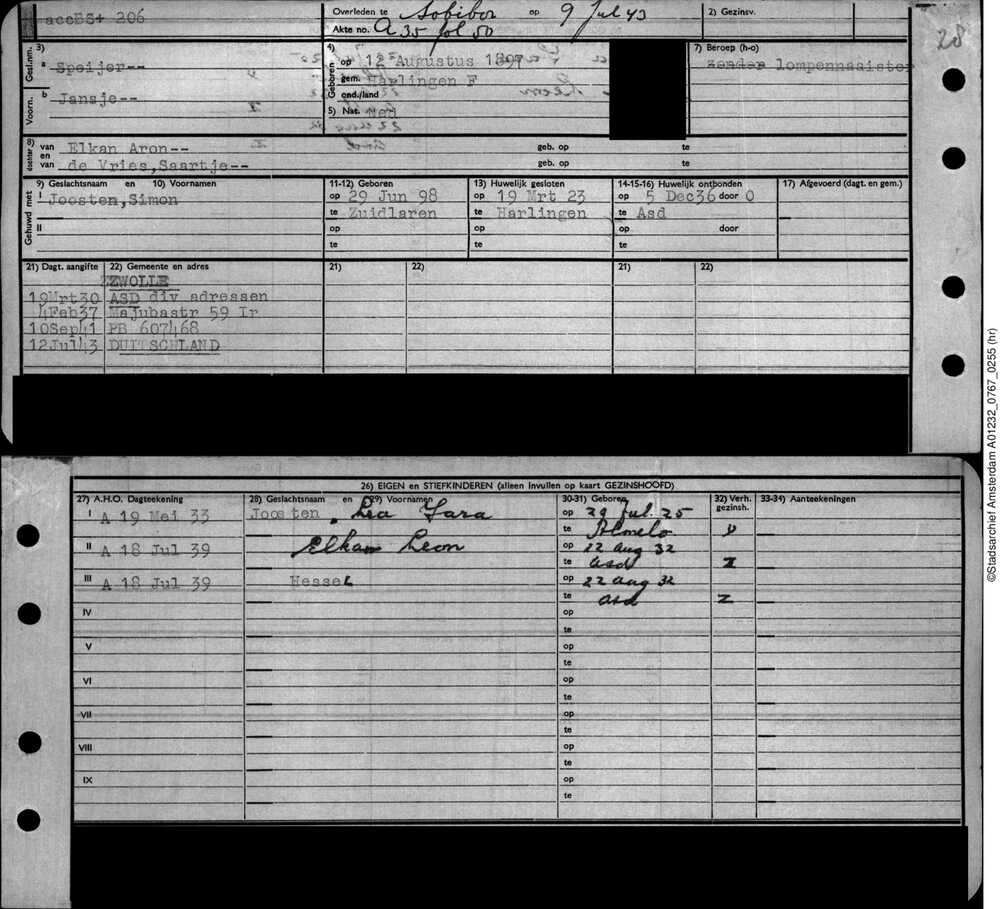 accB3+ 206
Overleden te Sobibor op 9 Jul 43
Akte no. A 35 fol 50
2) Gezinsv.
28
3) Gesl.nm. a Speijer--
Voorn. b Jansje--
4) Geboren op 12 Augustus 1897
gem. Harlingen F
end./land
5) Nat. Ned
7) Beroep (h-o)
zonder lompennaaister
8) dochter van Elkan Aron-- geb. op te
en
van de Vries,Saartje-- geb. op te
9) Geslachtsnaam en 10) Voornamen 11-12) Geboren 13) Huwelijk gesloten 14-15-16) Huwelijk ontbonden 17) Afgevoerd (dagt. en gem.)
Gehuwd met I Joosten,Simon op 29 Jun 98 op 19 Mrt 23 op 5 Dec36 door O
te Zuidlaren te Harlingen te Asd
II op op op door
te te te
21) Dagt. aangifte 22) Gemeente en adres 21) 22) 21) 22)
ZWOLLE
19Mrt30 ASD div adressen
4Feb37 Majubastr 59 Ir
10Sep41 PB 607468
12Jul43 DUITSCHLAND
26) EIGEN en STIEFKINDEREN (alleen invullen op kaart GEZINSHOOFD)
27) A.H.O. Dagteekening 28) Geslachtsnaam en 29) Voornamen 30-31) Geboren 32) Verh. gezinsh. 33-34) Aanteekeningen
I A 19 Mei 33 Joosten, Lea Sara op 29 Jul. 25
te Almelo D
II A 18 Jul 39 Elkan Leon op 22 aug 32
te asd Z
III A 18 Jul 39 Hessel op 22 aug 32
te asd Z
IV op
te
V op
te
VI op
te
VII op
te
VIII op
te
IX op
te
©Stadsarchief Amsterdam A01232_0767_0255 (hr)